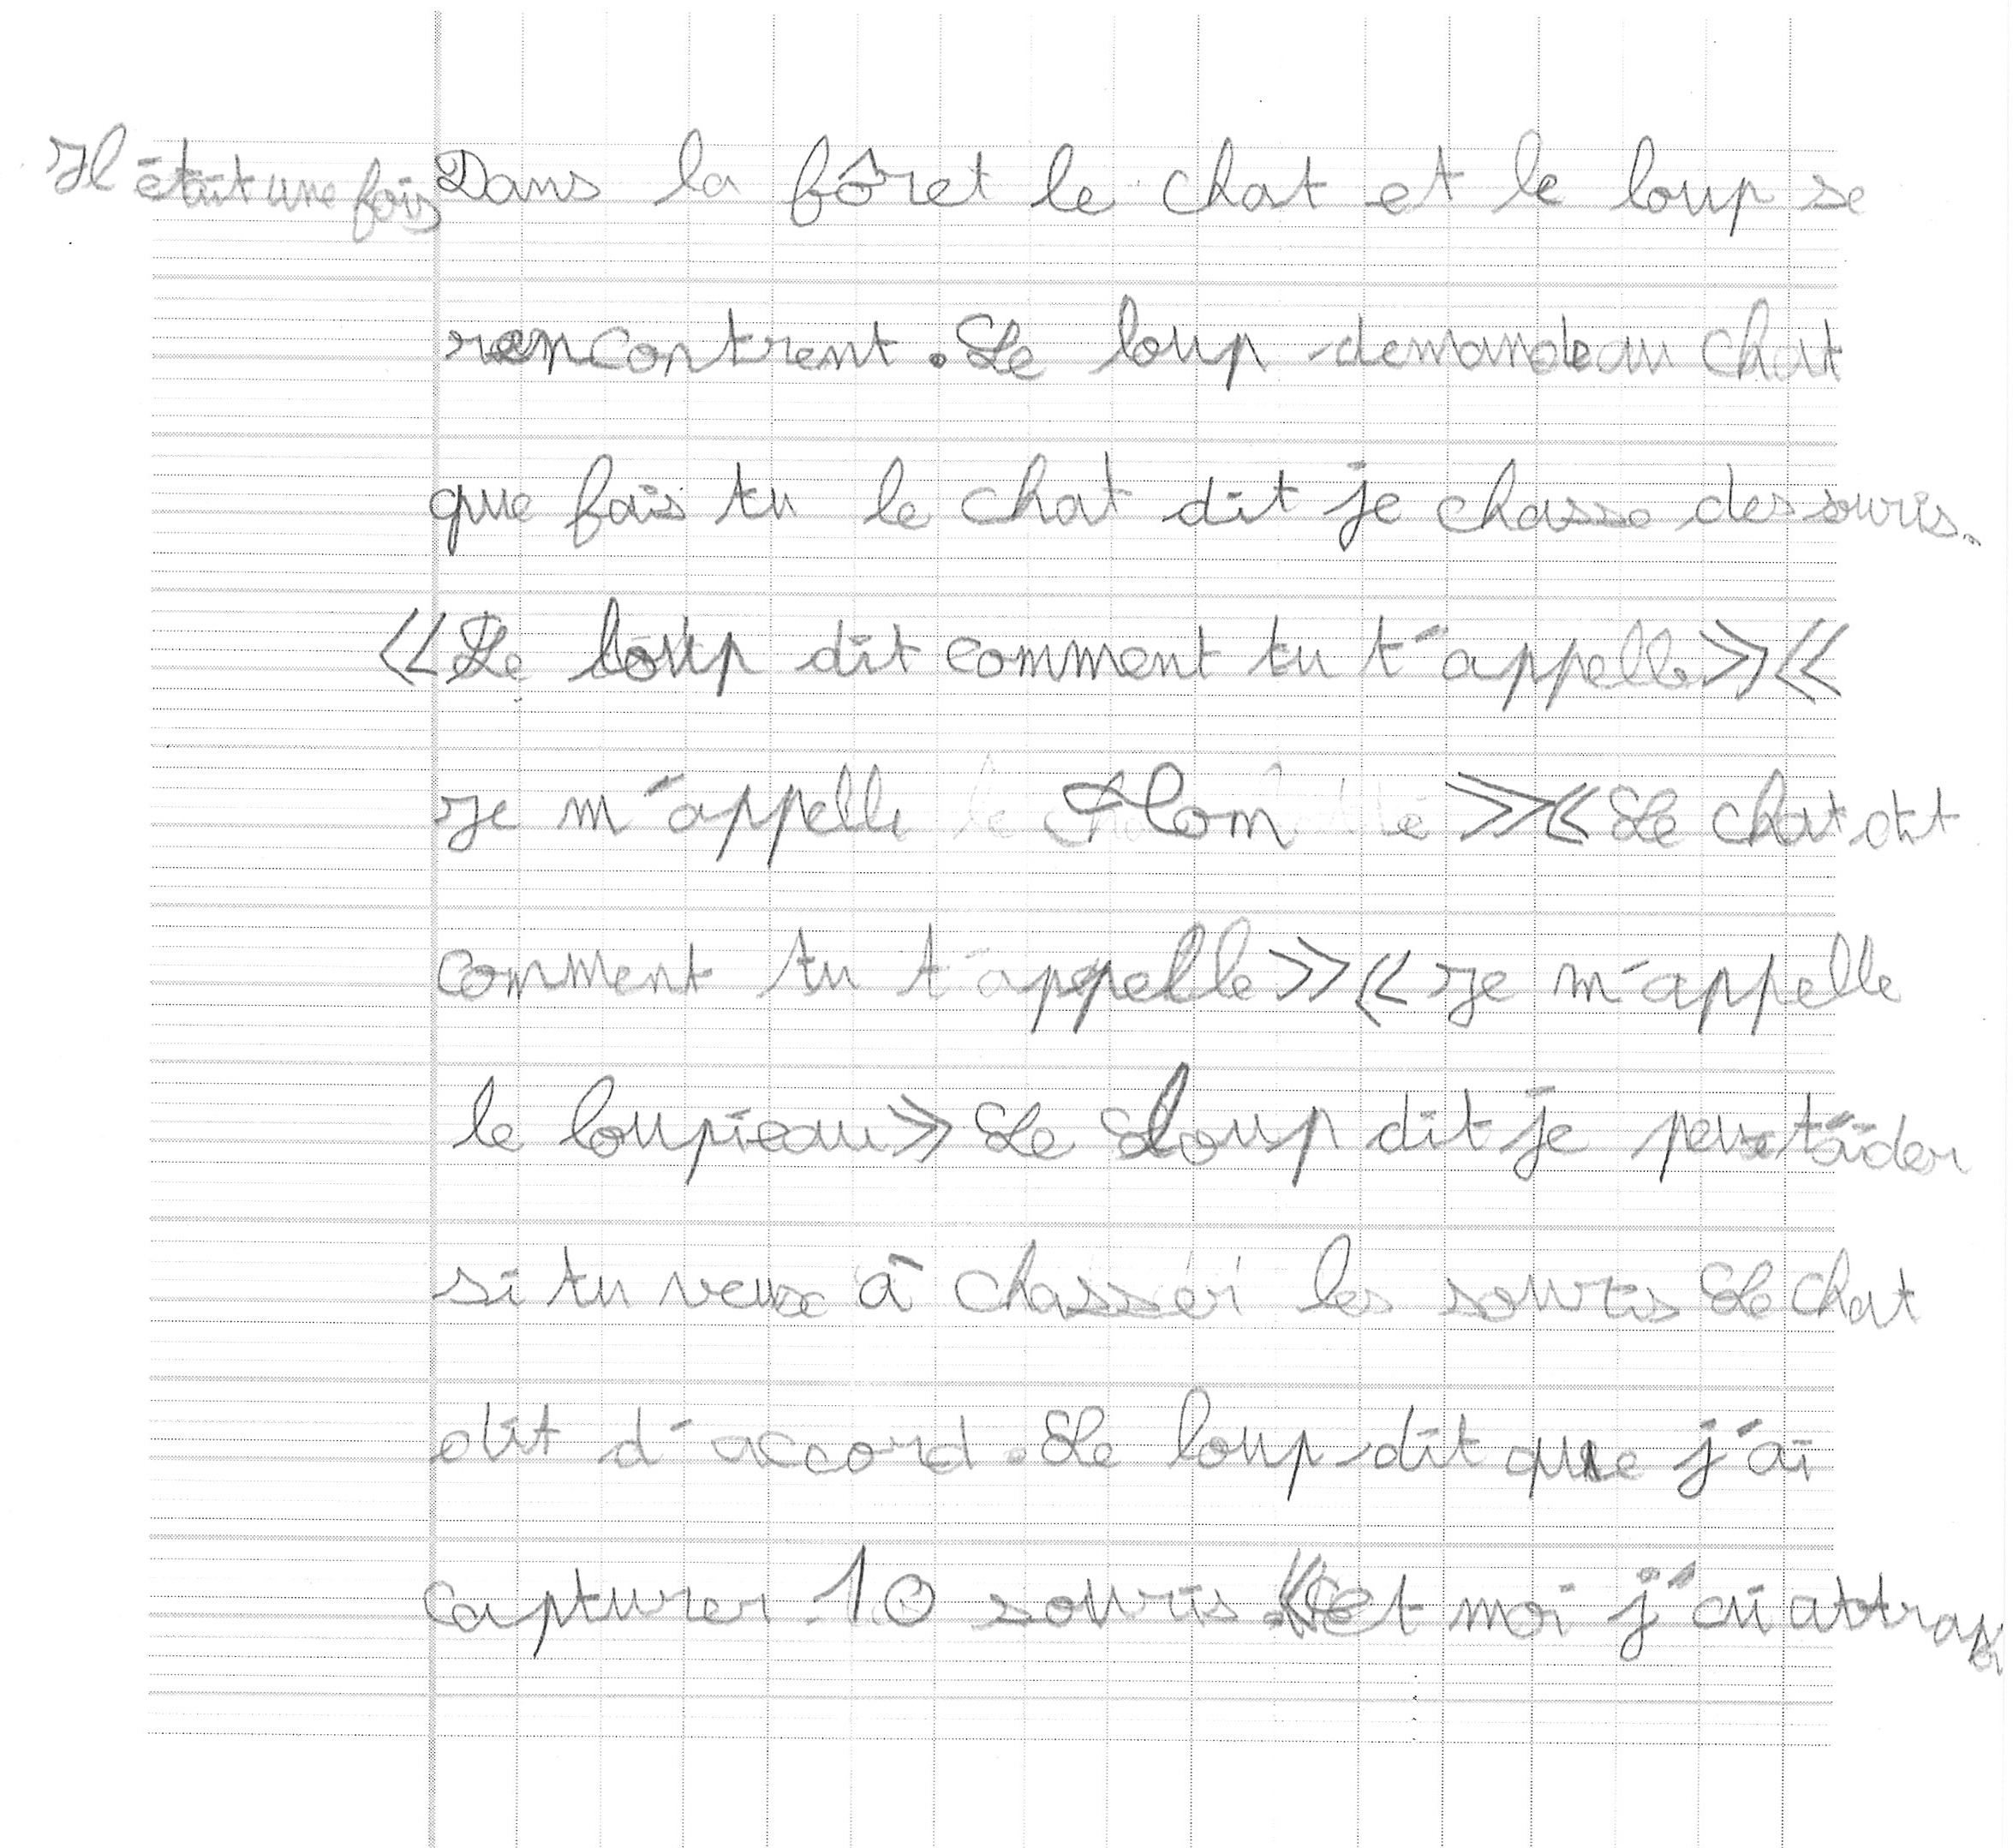 Il était une fois Dans la fôret le chat et le loup se
rencontrent. Le loup demande au chat
que fais tu le chat dit je chasse des souris.
«Le loup dit comment tu t'appelle»«
Je m'appelle Tom »«Le chat dit
comment tu t'appelle»«Je m'appelle
le loupieau» Le loup dit je peux t'aider
si tu veux à chasser les souris Le chat
dit d'accord. Le loup dit que j'ai
capturer 10 souris. «et moi j'ai attrap